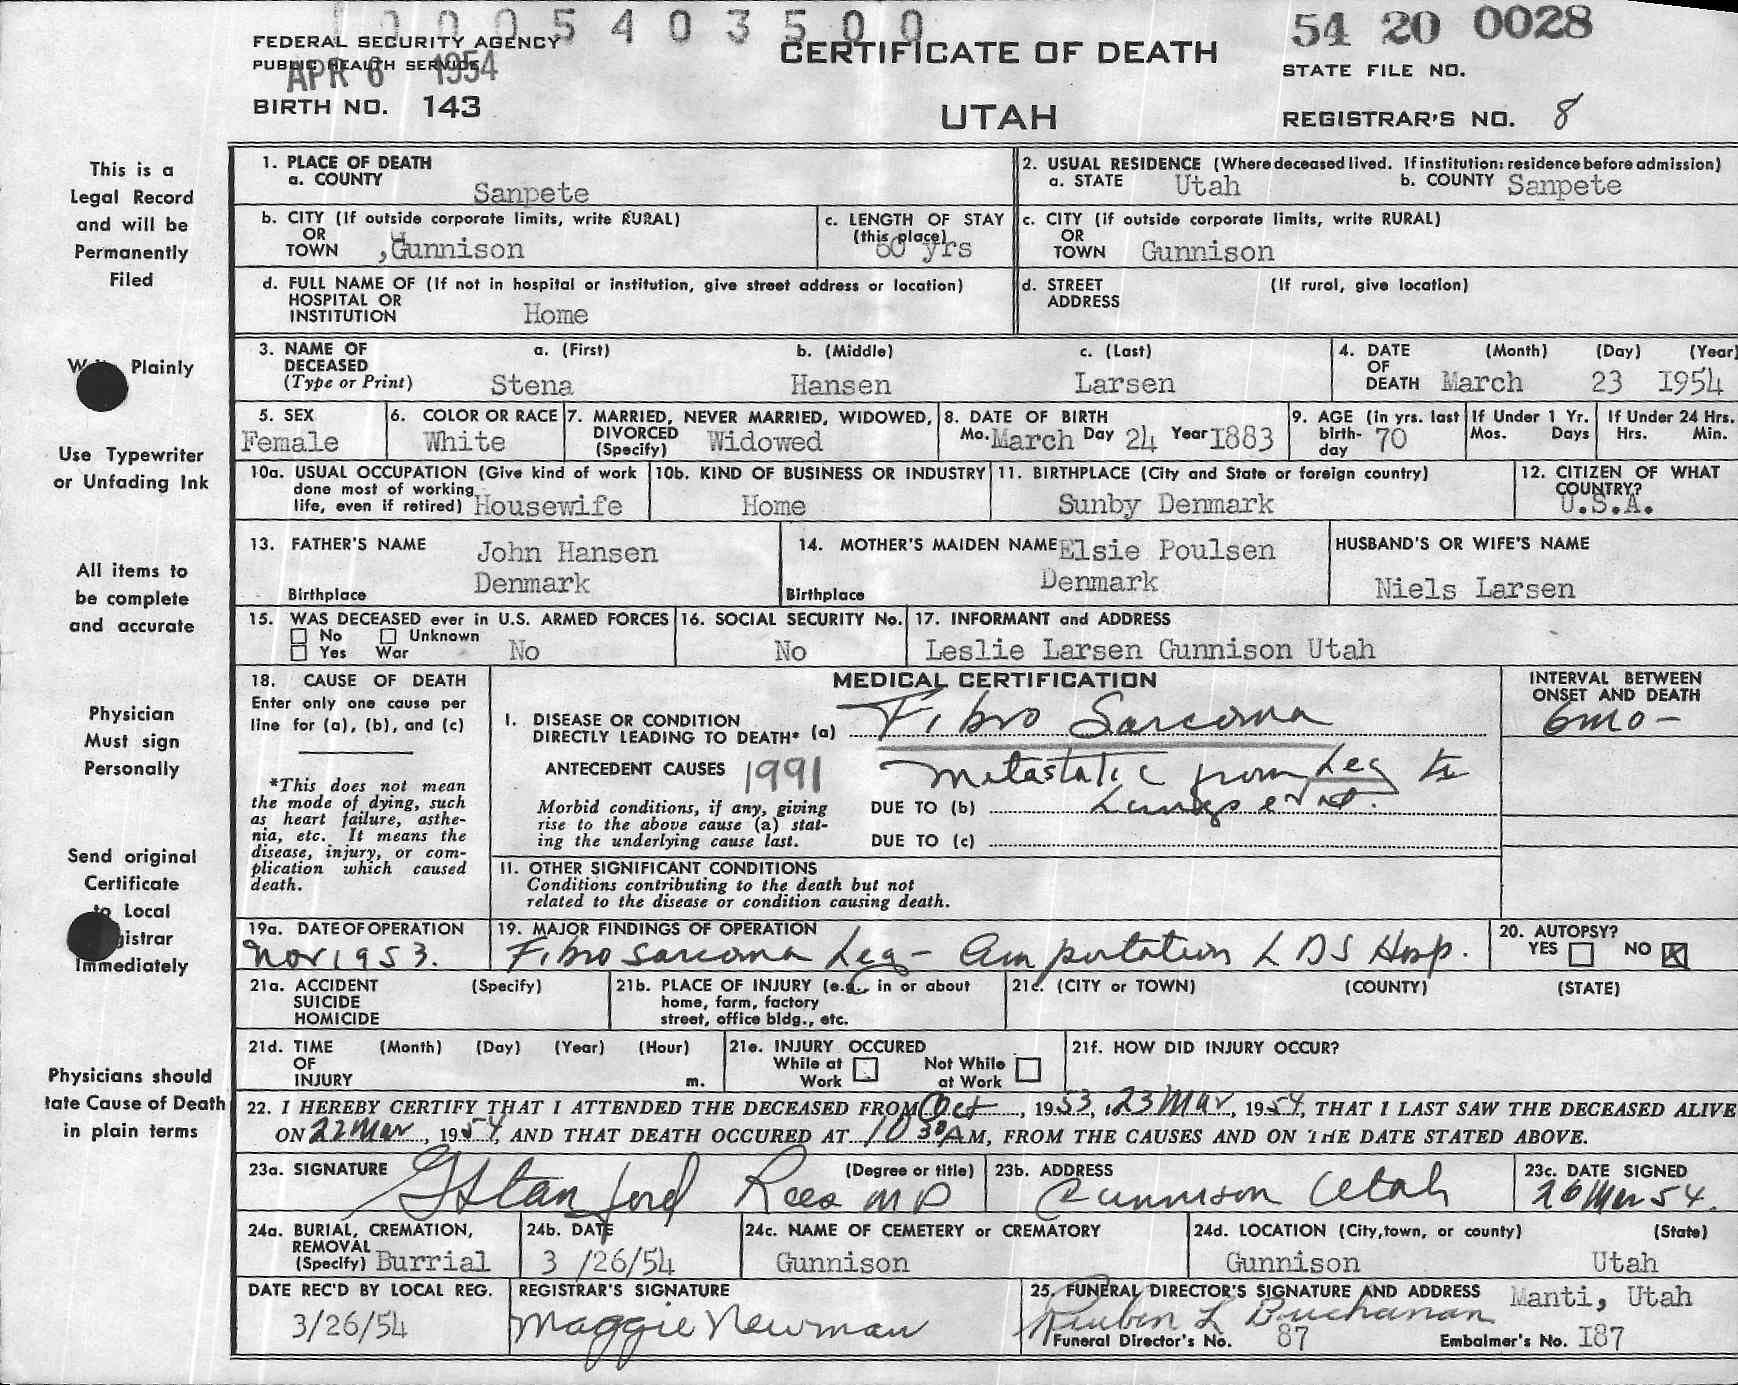 0005403500
54 20 0028
FEDERAL SECURITY AGENCY
PUBLIC HEALTH SERVICE
APR 6 1954
CERTIFICATE OF DEATH
STATE FILE NO.
BIRTH NO. 143
UTAH
REGISTRAR'S NO. 8
This is a
Legal Record
and will be
Permanently
Filed
Plainly
Use Typewriter
or Unfading Ink
All items to
be complete
and accurate
Physician
Must sign
Personally
Send original
Certificate
to Local
gistrar
Immediately
Physicians should
tate Cause of Death
in plain terms
1. PLACE OF DEATH
a. COUNTY
Sanpete
2. USUAL RESIDENCE (Where deceased lived. If institution: residence before admission)
a. STATE Utah b. COUNTY Sanpete
b. CITY (If outside corporate limits, write RURAL)
OR
TOWN ,Gunnison
c. LENGTH OF STAY
(this place)
60 yrs
c. CITY (if outside corporate limits, write RURAL)
OR
TOWN Gunnison
d. FULL NAME OF (If not in hospital or institution, give street address or location)
HOSPITAL OR
INSTITUTION Home
d. STREET (If rural, give location)
ADDRESS
3. NAME OF a. (First) b. (Middle) c. (Last)
DECEASED
(Type or Print) Stena Hansen Larsen
4. DATE (Month) (Day) (Year)
OF
DEATH March 23 1954
5. SEX
Female
6. COLOR OR RACE
White
7. MARRIED, NEVER MARRIED, WIDOWED,
DIVORCED
(Specify) Widowed
8. DATE OF BIRTH
Mo. March Day 24 Year 1883
9. AGE (in yrs. last
birth-
day 70
If Under 1 Yr.
Mos. Days
If Under 24 Hrs.
Hrs. Min.
10a. USUAL OCCUPATION (Give kind of work
done most of working
life, even if retired) Housewife
10b. KIND OF BUSINESS OR INDUSTRY
Home
11. BIRTHPLACE (City and State or foreign country)
Sunby Denmark
12. CITIZEN OF WHAT
COUNTRY?
U.S.A.
13. FATHER'S NAME John Hansen
Birthplace Denmark
14. MOTHER'S MAIDEN NAME Elsie Poulsen
Birthplace Denmark
HUSBAND'S OR WIFE'S NAME
Niels Larsen
15. WAS DECEASED ever in U.S. ARMED FORCES
No Unknown
Yes War No
16. SOCIAL SECURITY No.
No
17. INFORMANT and ADDRESS
Leslie Larsen Gunnison Utah
18. CAUSE OF DEATH
Enter only one cause per
line for (a), (b), and (c)
*This does not mean
the mode of dying, such
as heart failure, asthe-
nia, etc. It means the
disease, injury, or com-
plication which caused
death.
MEDICAL CERTIFICATION
I. DISEASE OR CONDITION
DIRECTLY LEADING TO DEATH* (a) Fibro Sarcoma
ANTECEDENT CAUSES 1991 Metastatic from Leg to
Morbid conditions, if any, giving
rise to the above cause (a) stat-
ing the underlying cause last.
DUE TO (b) Lungs
DUE TO (c)
II. OTHER SIGNIFICANT CONDITIONS
Conditions contributing to the death but not
related to the disease or condition causing death.
INTERVAL BETWEEN
ONSET AND DEATH
6mo-
19a. DATE OF OPERATION
Nov 1953.
19. MAJOR FINDINGS OF OPERATION
Fibro sarcoma Leg - Amputation L D S Hosp.
20. AUTOPSY?
YES NO
21a. ACCIDENT (Specify)
SUICIDE
HOMICIDE
21b. PLACE OF INJURY (e.g., in or about
home, farm, factory
street, office bldg., etc.
21c. (CITY or TOWN) (COUNTY) (STATE)
21d. TIME (Month) (Day) (Year) (Hour)
OF
INJURY m.
21e. INJURY OCCURED
While at Not While
Work at Work
21f. HOW DID INJURY OCCUR?
22. I HEREBY CERTIFY THAT I ATTENDED THE DECEASED FROM Oct, 1953, 23 Mar, 1954, THAT I LAST SAW THE DECEASED ALIVE
ON 22 Mar, 1954, AND THAT DEATH OCCURED AT 10 30 AM, FROM THE CAUSES AND ON THE DATE STATED ABOVE.
23a. SIGNATURE (Degree or title)
G Stanford Rees MD
23b. ADDRESS
Gunnison Utah
23c. DATE SIGNED
26 Mar 54.
24a. BURIAL, CREMATION,
REMOVAL
(Specify) Burrial
24b. DATE
3 /26/54
24c. NAME OF CEMETERY or CREMATORY
Gunnison
24d. LOCATION (City, town, or county) (State)
Gunnison Utah
DATE REC'D BY LOCAL REG.
3/26/54
REGISTRAR'S SIGNATURE
Maggie Newman
25. FUNERAL DIRECTOR'S SIGNATURE AND ADDRESS Manti, Utah
Reuben L Buchanan
Funeral Director's No. 87 Embalmer's No. I87